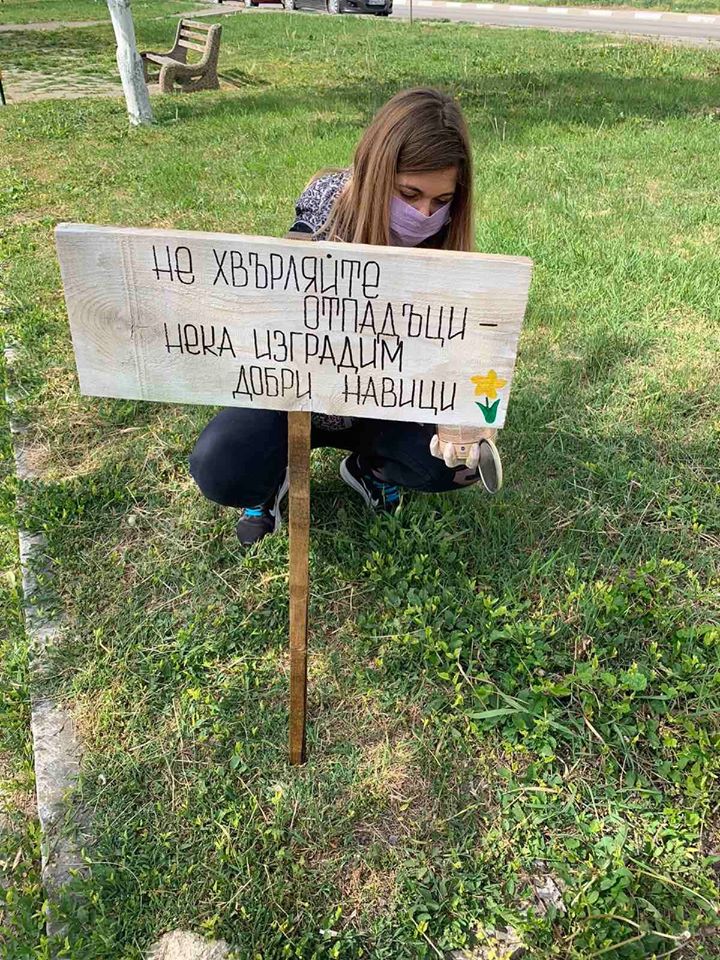 НЕ ХВЪРЛЯЙТЕ
ОТПАДЪЦИ –
НЕКА ИЗГРАДИМ
ДОБРИ НАВИЦИ